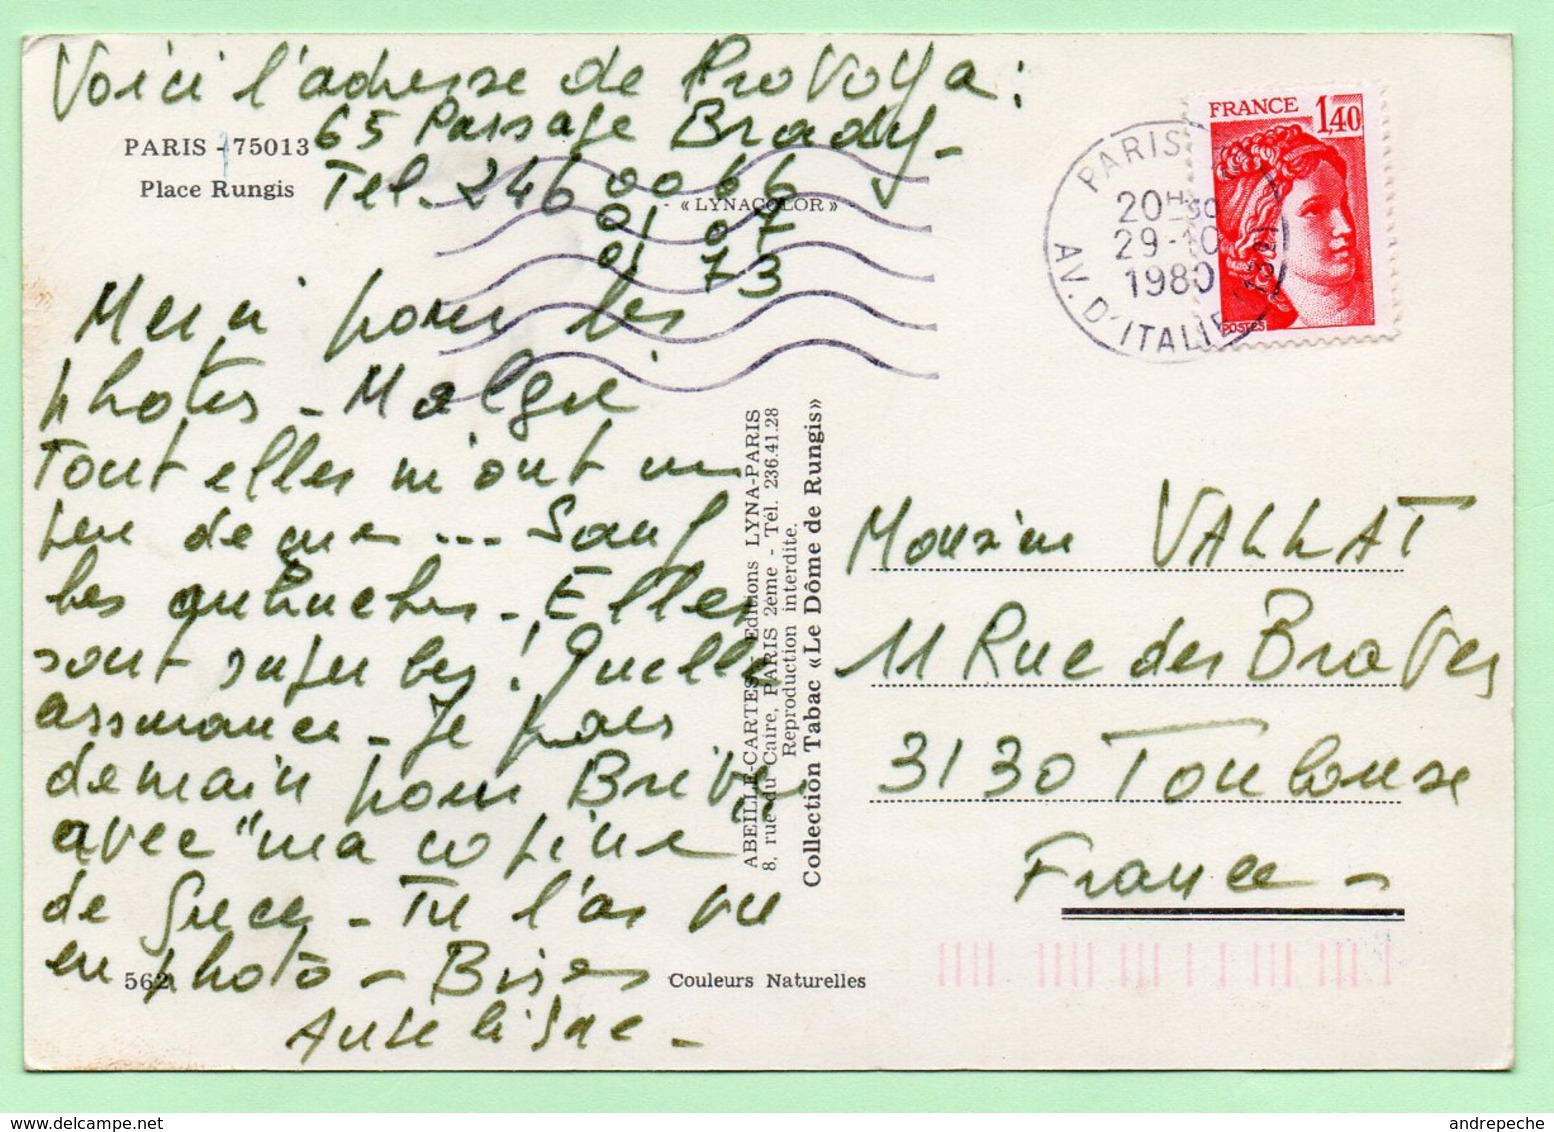 Voici l'adresse de ProVoya :
65 Passage Brady -
PARIS - 75013
Place Rungis
Tel. 246 00 66
01 07
01 73
- « LYNACOLOR » -
Merci pour les
photos - Malgré
Tout elles m'ont un
peu deçues ... Sauf
les autruches - Elles
sont superbes ! Quelle
assurance - Je pars
demain pour Brive
avec "ma copine
de Grece - Tu l'as vu
en photo - Bises
562
Couleurs Naturelles
ABEILLE-CARTES Editions LYNA-PARIS
8, rue du Caire, PARIS 2ème - Tél. 236.41.28
Reproduction interdite.
Collection Tabac «Le Dôme de Rungis»
FRANCE 1,40
POSTES
PARIS
20H30
29-10
1980
AV. D'ITALIE (13e)
Monsieur VALLAT
11 Rue des Braves
3130 Toulouse
France -
andrepeche